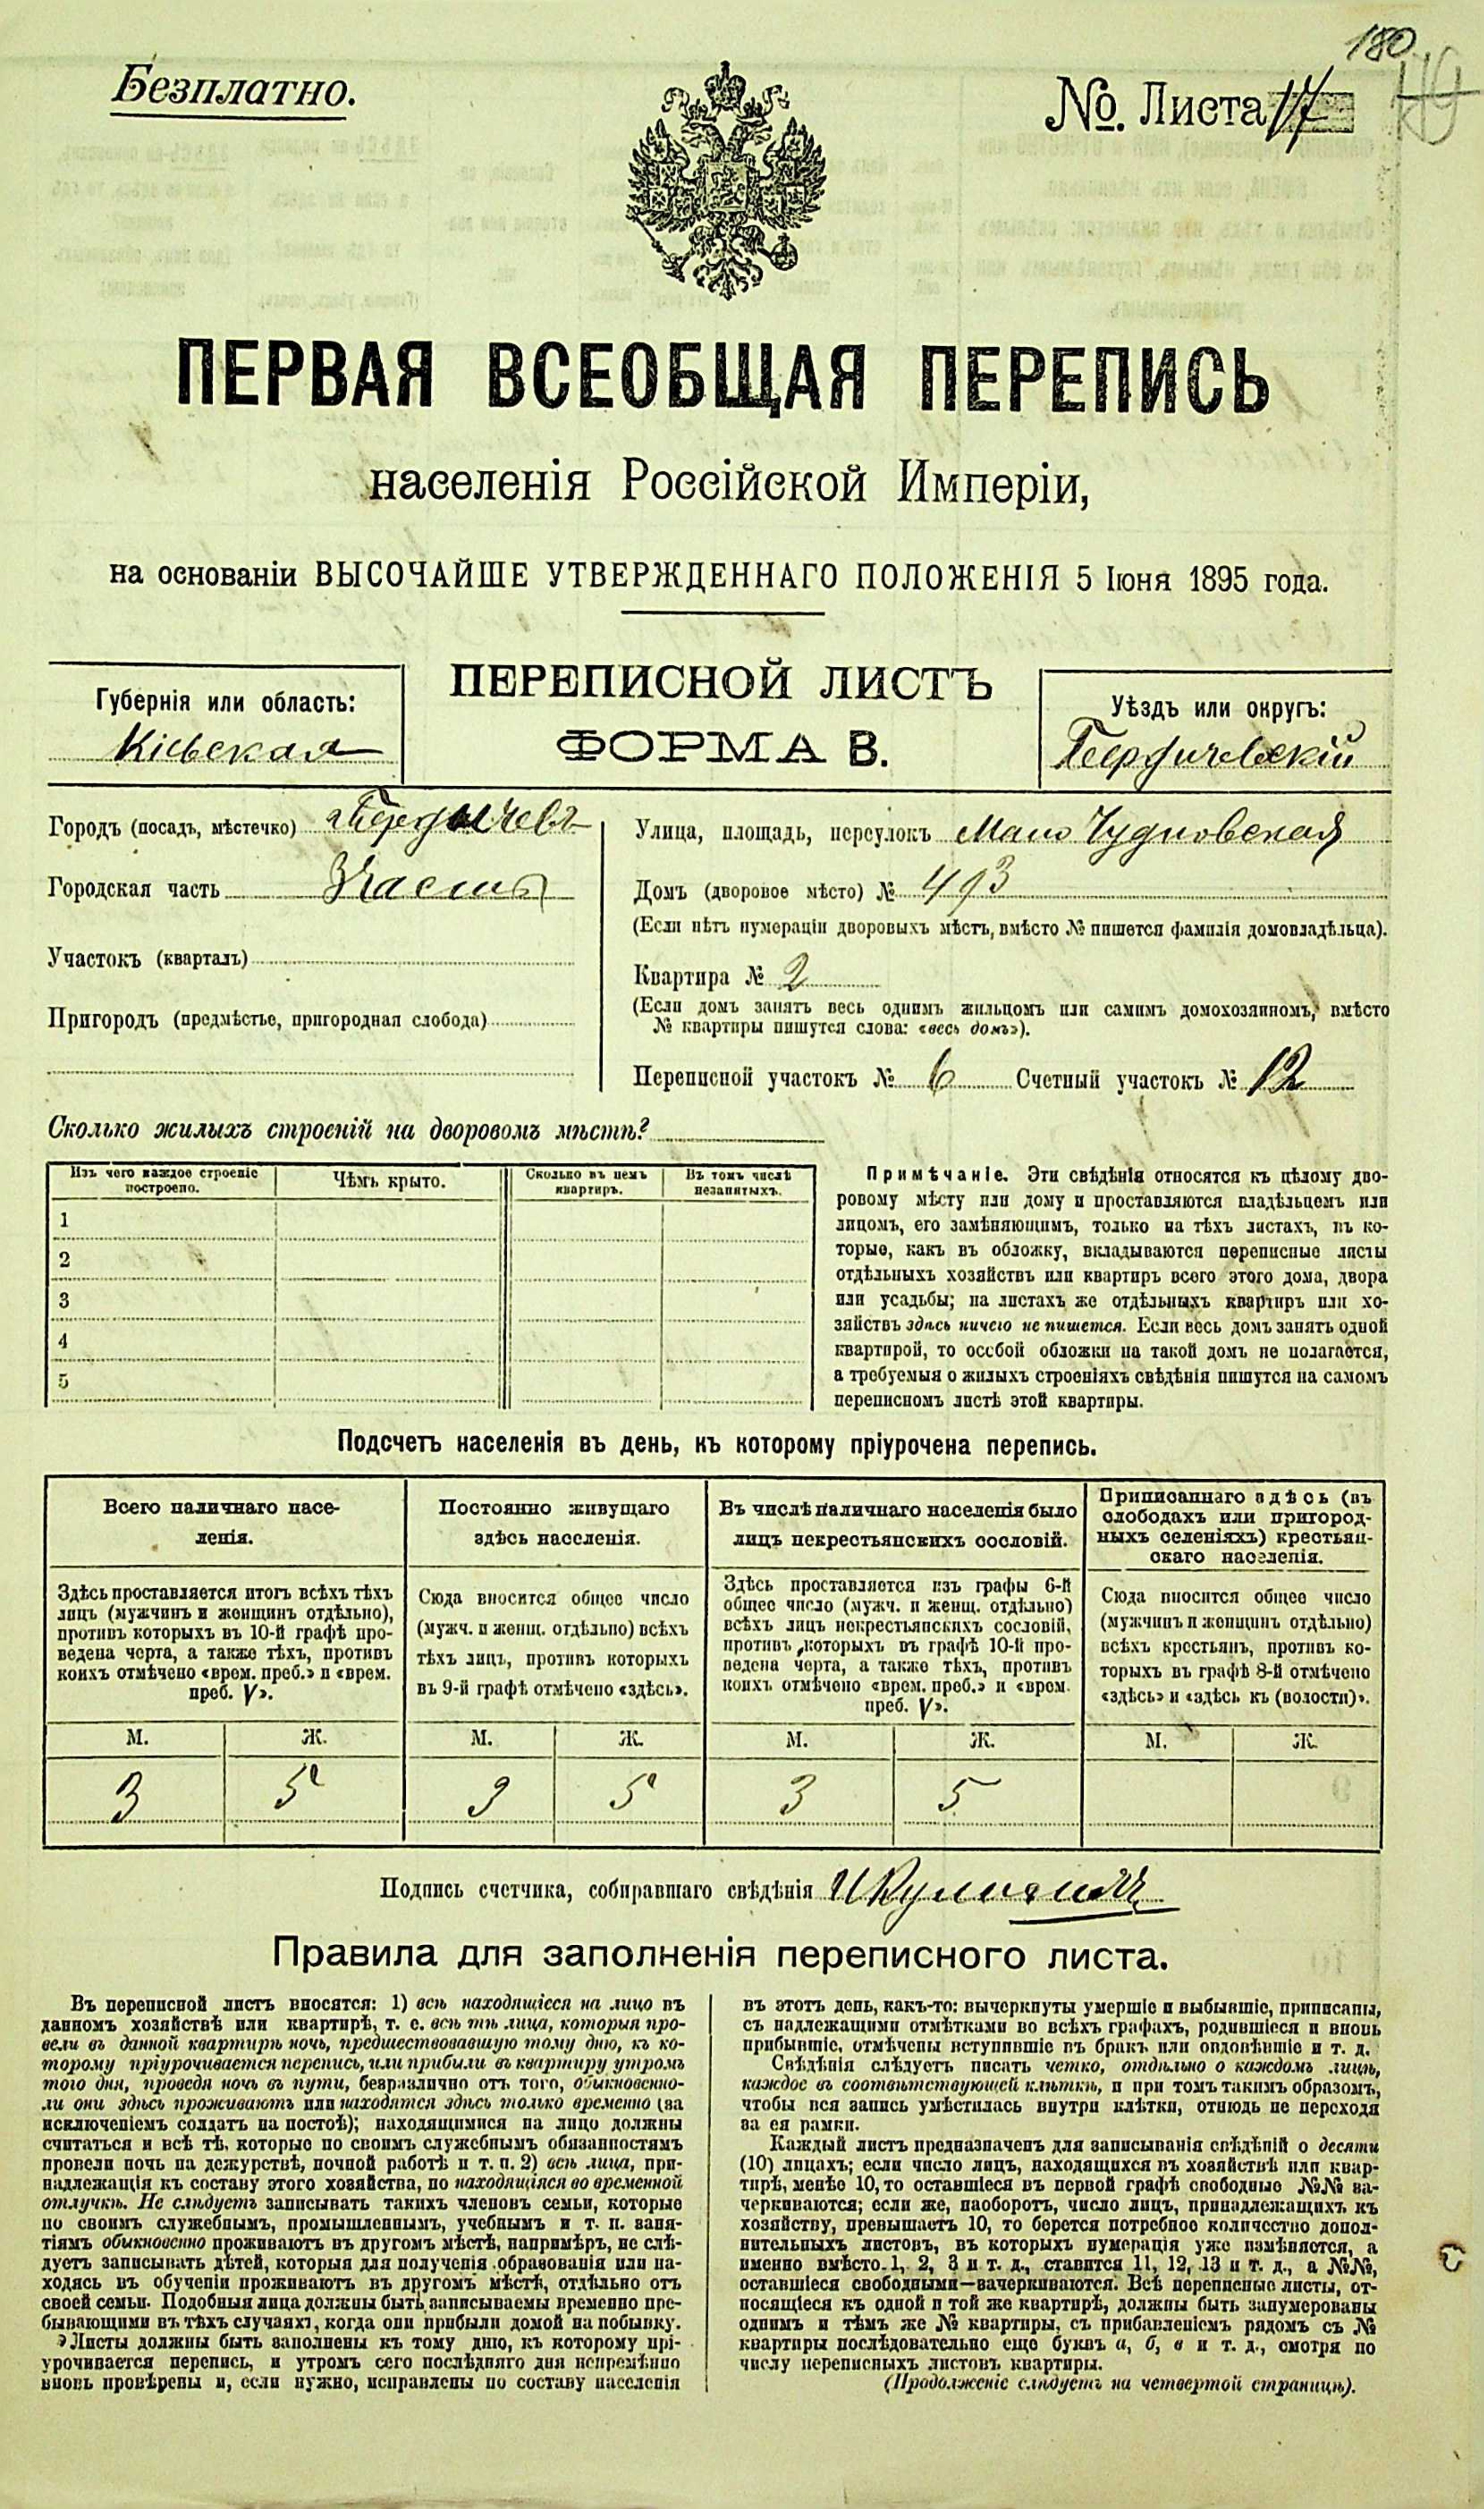 180
Безплатно.
№. Листа 17
ПЕРВАЯ ВСЕОБЩАЯ ПЕРЕПИСЬ
населенія Россійской Имперіи,
на основаніи ВЫСОЧАЙШЕ УТВЕРЖДЕННАГО ПОЛОЖЕНІЯ 5 Іюня 1895 года.
Губернія или область:
Кіевская
ПЕРЕПИСНОЙ ЛИСТЪ
ФОРМА В.
Уѣздъ или округъ:
Бердичевскій
Городъ (посадъ, мѣстечко) Бердичевъ
Городская часть 3 часть
Участокъ (кварталъ)
Пригородъ (предмѣстье, пригородная слобода)
Улица, площадь, переулокъ Мало Чудновская
Домъ (дворовое мѣсто) № 493
(Если нѣтъ нумераціи дворовыхъ мѣстъ, вмѣсто № пишется фамилія домовладѣльца).
Квартира № 2
(Если домъ занятъ весь однимъ жильцомъ или самимъ домохозяиномъ, вмѣсто
№ квартиры пишутся слова: «весь домъ»).
Переписной участокъ № 6 Счетный участокъ № 12
Сколько жилыхъ строеній на дворовомъ мѣстѣ?
Изъ чего каждое строеніе
построено.
Чѣмъ крыто.
Сколько въ немъ
квартиръ.
Въ томъ числѣ
незанятыхъ.
1
2
3
4
5
Примѣчаніе. Эти свѣдѣнія относятся къ цѣлому дво-
ровому мѣсту или дому и проставляются владѣльцемъ или
лицомъ, его замѣняющимъ, только на тѣхъ листахъ, въ ко-
торые, какъ въ обложку, вкладываются переписные листы
отдѣльныхъ хозяйствъ или квартиръ всего этого дома, двора
или усадьбы; на листахъ же отдѣльныхъ квартиръ или хо-
зяйствъ здѣсь ничего не пишется. Если весь домъ занятъ одной
квартирой, то особой обложки на такой домъ не полагается,
а требуемыя о жилыхъ строеніяхъ свѣдѣнія пишутся на самомъ
переписномъ листѣ этой квартиры.
Подсчетъ населенія въ день, къ которому пріурочена перепись.
Всего наличнаго насе-
ленія.
Здѣсь проставляется итогъ всѣхъ тѣхъ
лицъ (мужчинъ и женщинъ отдѣльно),
противъ которыхъ въ 10-й графѣ про-
ведена черта, а также тѣхъ, противъ
коихъ отмѣчено «врем. преб.» и «врем.
преб. V».
Постоянно живущаго
здѣсь населенія.
Сюда вносится общее число
(мужч. и женщ. отдѣльно) всѣхъ
тѣхъ лицъ, противъ которыхъ
въ 9-й графѣ отмѣчено «здѣсь».
Въ числѣ наличнаго населенія было
лицъ некрестьянскихъ сословій.
Здѣсь проставляется изъ графы 6-й
общее число (мужч. и женщ. отдѣльно)
всѣхъ лицъ некрестьянскихъ сословій,
противъ которыхъ въ графѣ 10-й про-
ведена черта, а также тѣхъ, противъ
коихъ отмѣчено «врем. преб.» и «врем.
преб. V».
Приписаннаго здѣсь (въ
слободахъ или пригород-
ныхъ селеніяхъ) крестьян-
скаго населенія.
Сюда вносится общее число
(мужчинъ и женщинъ отдѣльно)
всѣхъ крестьянъ, противъ ко-
торыхъ въ графѣ 8-й отмѣчено
«здѣсь» и «здѣсь къ (волости)».
М. Ж. М. Ж. М. Ж. М. Ж.
3 5 3 5 3 5
Подпись счетчика, собиравшаго свѣдѣнія
Правила для заполненія переписного листа.
Въ переписной листъ вносятся: 1) всѣ находящіеся на лицо въ
данномъ хозяйствѣ или квартирѣ, т. е. всѣ тѣ лица, которыя про-
вели въ данной квартирѣ ночь, предшествовавшую тому дню, къ ко-
торому пріурочивается перепись, или прибыли въ квартиру утромъ
того дня, проведя ночь въ пути, безразлично отъ того, обыкновенно-
ли они здѣсь проживаютъ или находятся здѣсь только временно (за
исключеніемъ солдатъ на постоѣ); находящимися на лицо должны
считаться и всѣ тѣ, которые по своимъ служебнымъ обязанностямъ
провели ночь на дежурствѣ, ночной работѣ и т. п. 2) всѣ лица, при-
надлежащія къ составу этого хозяйства, но находящіяся во временной
отлучкѣ. Не слѣдуетъ записывать такихъ членовъ семьи, которые
по своимъ служебнымъ, промышленнымъ, учебнымъ и т. п. заня-
тіямъ обыкновенно проживаютъ въ другомъ мѣстѣ, напримѣръ, не слѣ-
дуетъ записывать дѣтей, которыя для полученія образованія или на-
ходясь въ обученіи проживаютъ въ другомъ мѣстѣ, отдѣльно отъ
своей семьи. Подобныя лица должны быть записываемы временно пре-
бывающими въ тѣхъ случаяхъ, когда они прибыли домой на побывку.
Листы должны быть заполнены къ тому дню, къ которому прі-
урочивается перепись, и утромъ сего послѣдняго дня непремѣнно
вновь провѣрены и, если нужно, исправлены по составу населенія
въ этотъ день, какъ-то: вычеркнуты умершіе и выбывшіе, приписаны,
съ надлежащими отмѣтками во всѣхъ графахъ, родившіеся и вновь
прибывшіе, отмѣчены вступившіе въ бракъ или овдовѣвшіе и т. д.
Свѣдѣнія слѣдуетъ писать четко, отдѣльно о каждомъ лицѣ,
каждое въ соотвѣтствующей клѣткѣ, и при томъ такимъ образомъ,
чтобы вся запись умѣстилась внутри клѣтки, отнюдь не переходя
за ея рамки.
Каждый листъ предназначенъ для записыванія свѣдѣній о десяти
(10) лицахъ; если число лицъ, находящихся въ хозяйствѣ или квар-
тирѣ, менѣе 10, то оставшіеся въ первой графѣ свободные №№ за-
черкиваются; если же, наоборотъ, число лицъ, принадлежащихъ къ
хозяйству, превышаетъ 10, то берется потребное количество допол-
нительныхъ листовъ, въ которыхъ нумерація уже измѣняется, а
именно вмѣсто 1, 2, 3 и т. д., ставится 11, 12, 13 и т. д., а №№,
оставшіеся свободными—зачеркиваются. Всѣ переписные листы, от-
носящіеся къ одной и той же квартирѣ, должны быть занумерованы
однимъ и тѣмъ же № квартиры, съ прибавленіемъ рядомъ съ №
квартиры послѣдовательно еще буквъ а, б, в и т. д., смотря по
числу переписныхъ листовъ квартиры.
(Продолженіе слѣдуетъ на четвертой страницѣ).